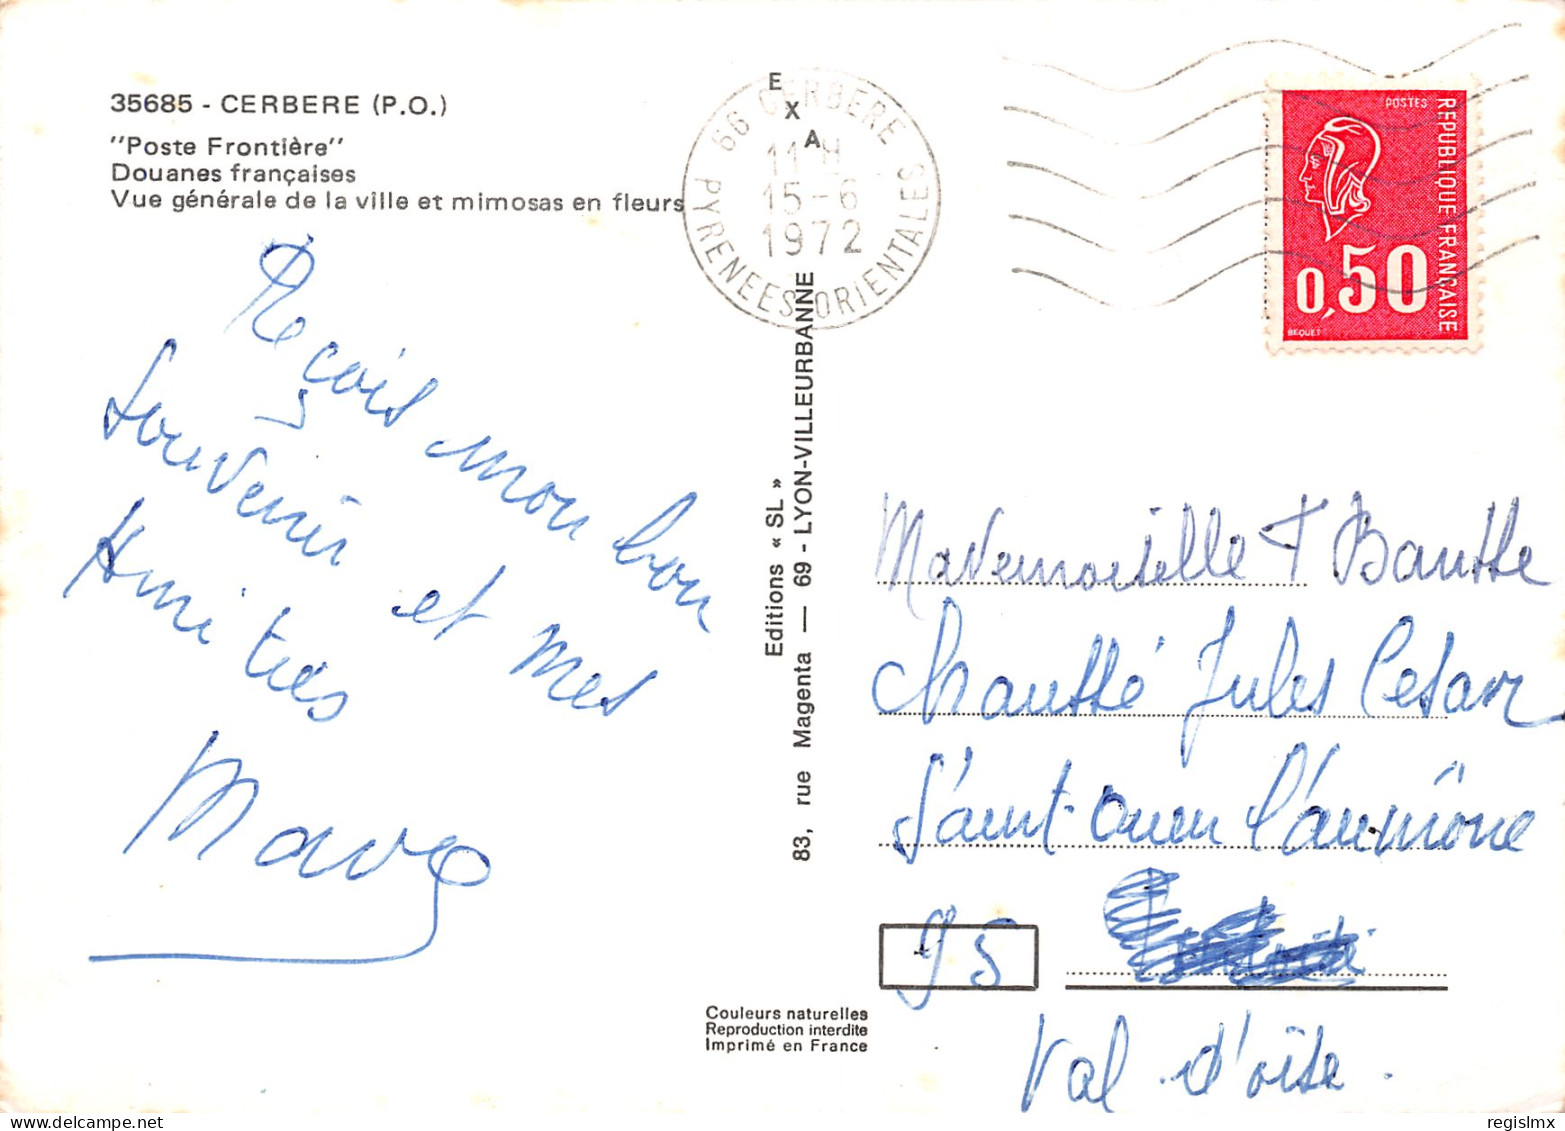 35685 - CERBERE (P.O.)
"Poste Frontière"
Douanes françaises
Vue générale de la ville et mimosas en fleurs
EXA
66 CERBERE
11 H
15-6
1972
PYRENEES ORIENTALES
POSTES
REPUBLIQUE FRANÇAISE
0,50
BEQUET
Reçois mon bon
souvenir et mes
Amitiés
Editions « SL »
83, rue Magenta — 69 - LYON-VILLEURBANNE
Mademoiselle F
Chaussé Jules Cesar
Saint-Ouen l'aumône
95
Val d'oise.
Couleurs naturelles
Reproduction interdite
Imprimé en France
regislmx